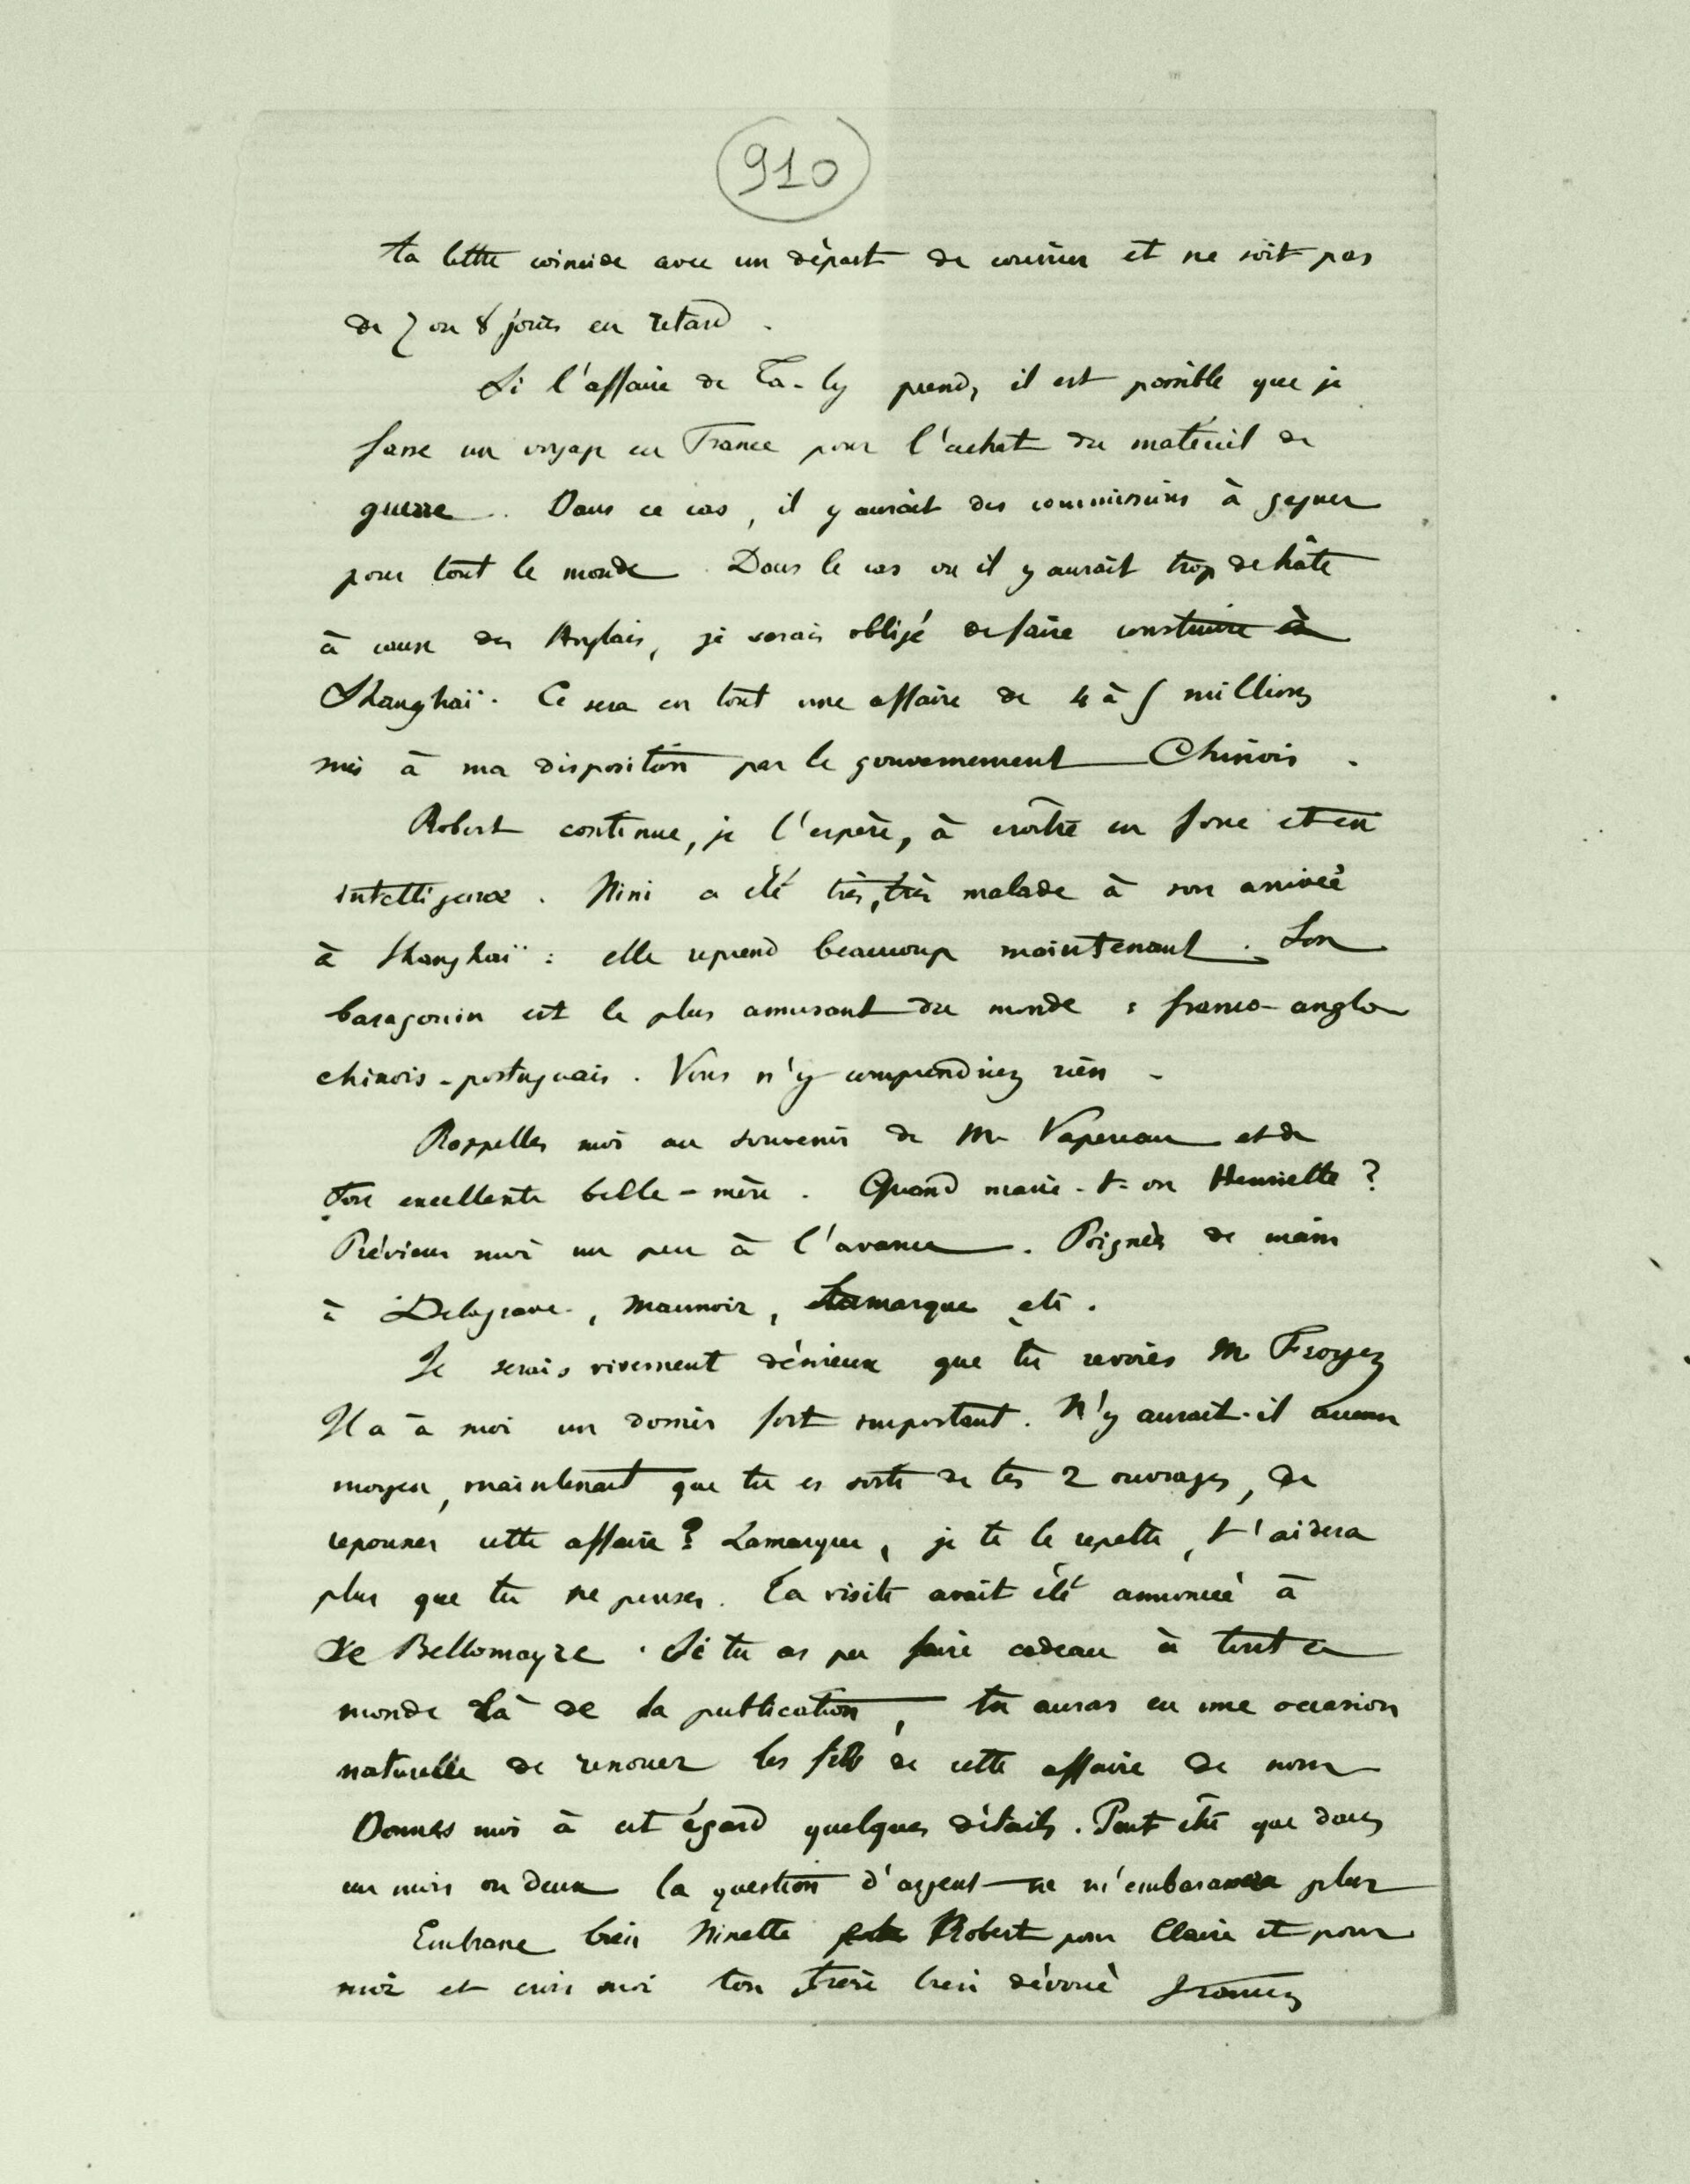 910
ta lettre coincide avec un départ de courrier et ne soit pas
de 7 ou 8 jours en retard .
Si l'affaire de Ta-ly prend, il est possible que je
fasse un voyage en France pour l'achat du matériel de
guerre . Dans ce cas , il y aurait des commissions à gagner
pour tout le monde . Dans le cas ou il y aurait trop de hâte
à cause des Anglais, je serais obligé de faire construire à
Shanghaï . Ce sera en tout une affaire de 4 à 5 millions
mis à ma disposition par le gouvernement Chinois .
Robert continue, je l'espère, à croître en force et en
intelligence . Nini a été très, très malade à son arrivée
à Shanghaï : elle reprend beaucoup maintenant . Son
baragouin est le plus amusant du monde : franco-anglo
chinois-portugais . Vous n'y comprendriez rien .
Rappelles moi au souvenir de Mr Vapereau et de
ton excellente belle-mère . Quand marie-t-on Henriette ?
Préviens moi un peu à l'avance . Poignées de main
à Delagrave , Maunoir , Lamarque etc .
Je serais vivement désireux que tu revoies Mr Froyez
Il a à moi un dossier fort important . N'y aurait-il aucun
moyen , maintenant que tu es sorti de tes 2 ouvrages , de
repousser cette affaire ? Lamarque , je te le repette , t'aidera
plus que tu ne penses . Ta visite avait été annoncée à
De Bellomayre . Si tu as pu faire cadeau à tout ce
monde là de la publication , tu auras eu une occasion
naturelle de renouer les fils de cette affaire de nom
Donnes moi à cet égard quelques détails . Peut être que dans
un mois ou deux la question d'argent ne m'embarassera plus
Embrasse bien Ninette Robert pour Claire et pour
moi et crois moi ton frère bien dévoué Francis